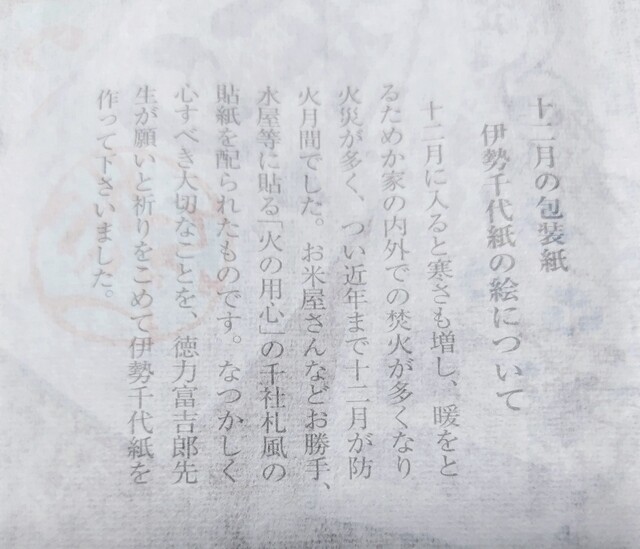 十二月の包装紙
伊勢千代紙の絵について
十二月に入ると寒さも増し、暖をと
るためか家の内外での焚火が多くなり
火災が多く、つい近年まで十二月が防
火月間でした。お米屋さんなどお勝手、
水屋等に貼る「火の用心」の千社札風の
貼紙を配られたものです。なつかしく
心すべき大切なことを、徳力富吉郎先
生が願いと祈りをこめて伊勢千代紙を
作って下さいました。